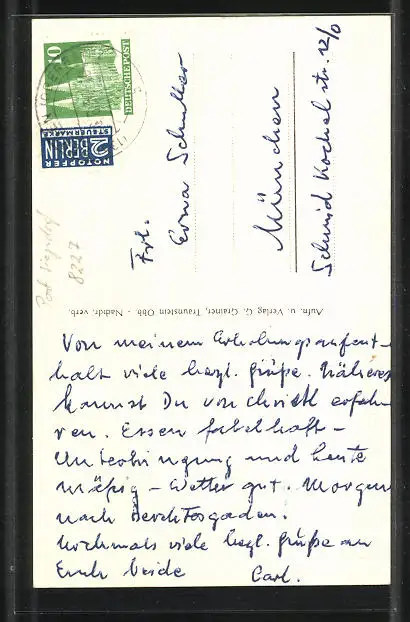 10
DEUTSCHE POST
NOTOPFER
2 BERLIN
STEUERMARKE
Frl.
Erna Schuller
München
Schmid Kochel str. 12/0
8227
Aufn. u. Verlag G. Grainer, Traunstein Obb. - Nachdr. verb.
Von meinem Erholungsaufent-
halt viele hrzl. Grüße. Näheres
kannst Du von Christl erfah
ren. Essen fabelhaft -
Unterbringung und heute
mäßig - Wetter gut. Morgen
nach Berchtesgaden.
Nochmals viele hrzl. Grüße an
Euch beide
Carl.